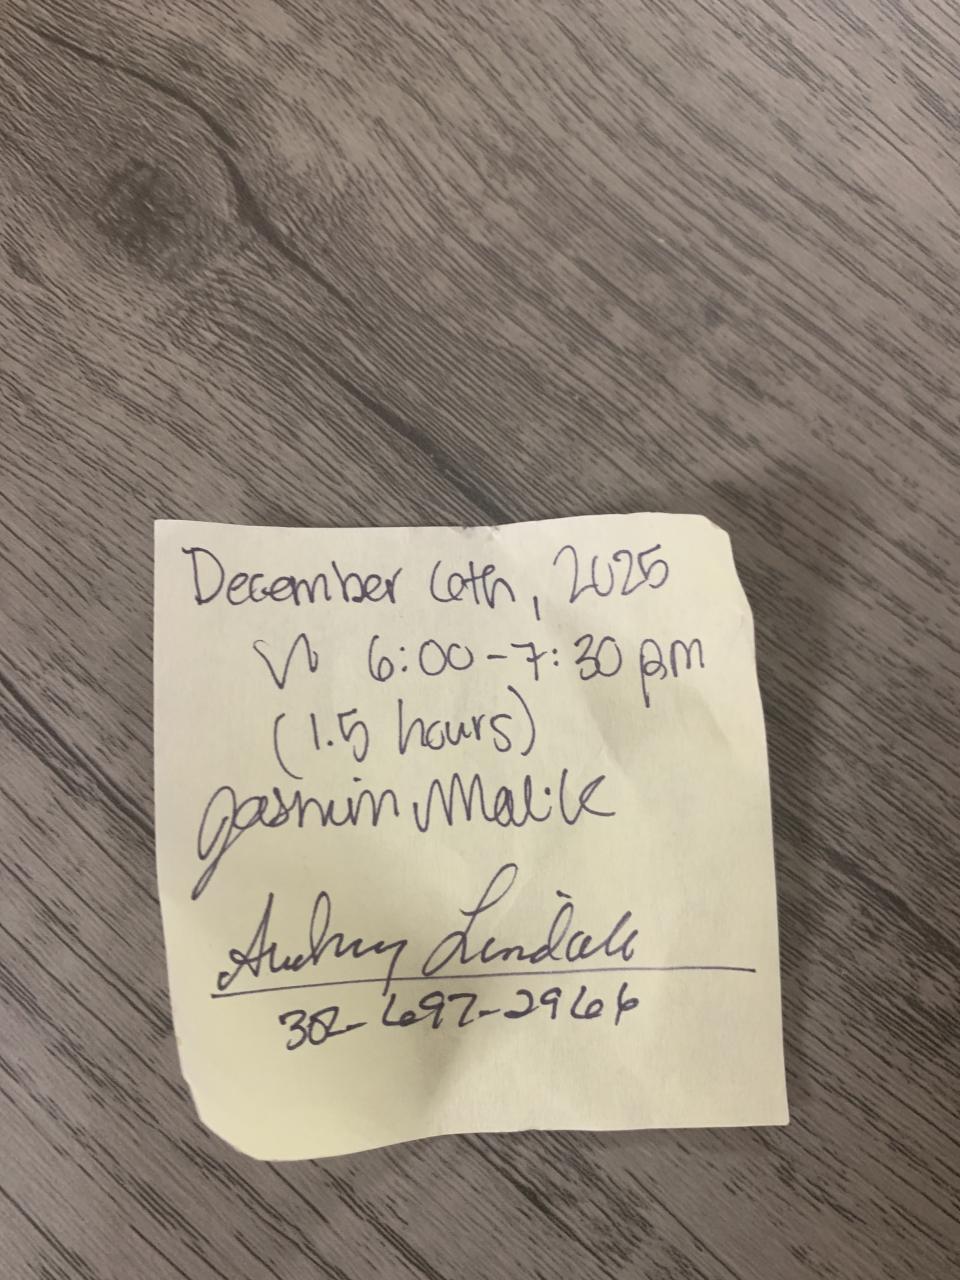 December 6th, 2025
6:00-7:30 pm
(1.5 hours)
Jashmin Malik
Audrey Lindale
302-697-2966